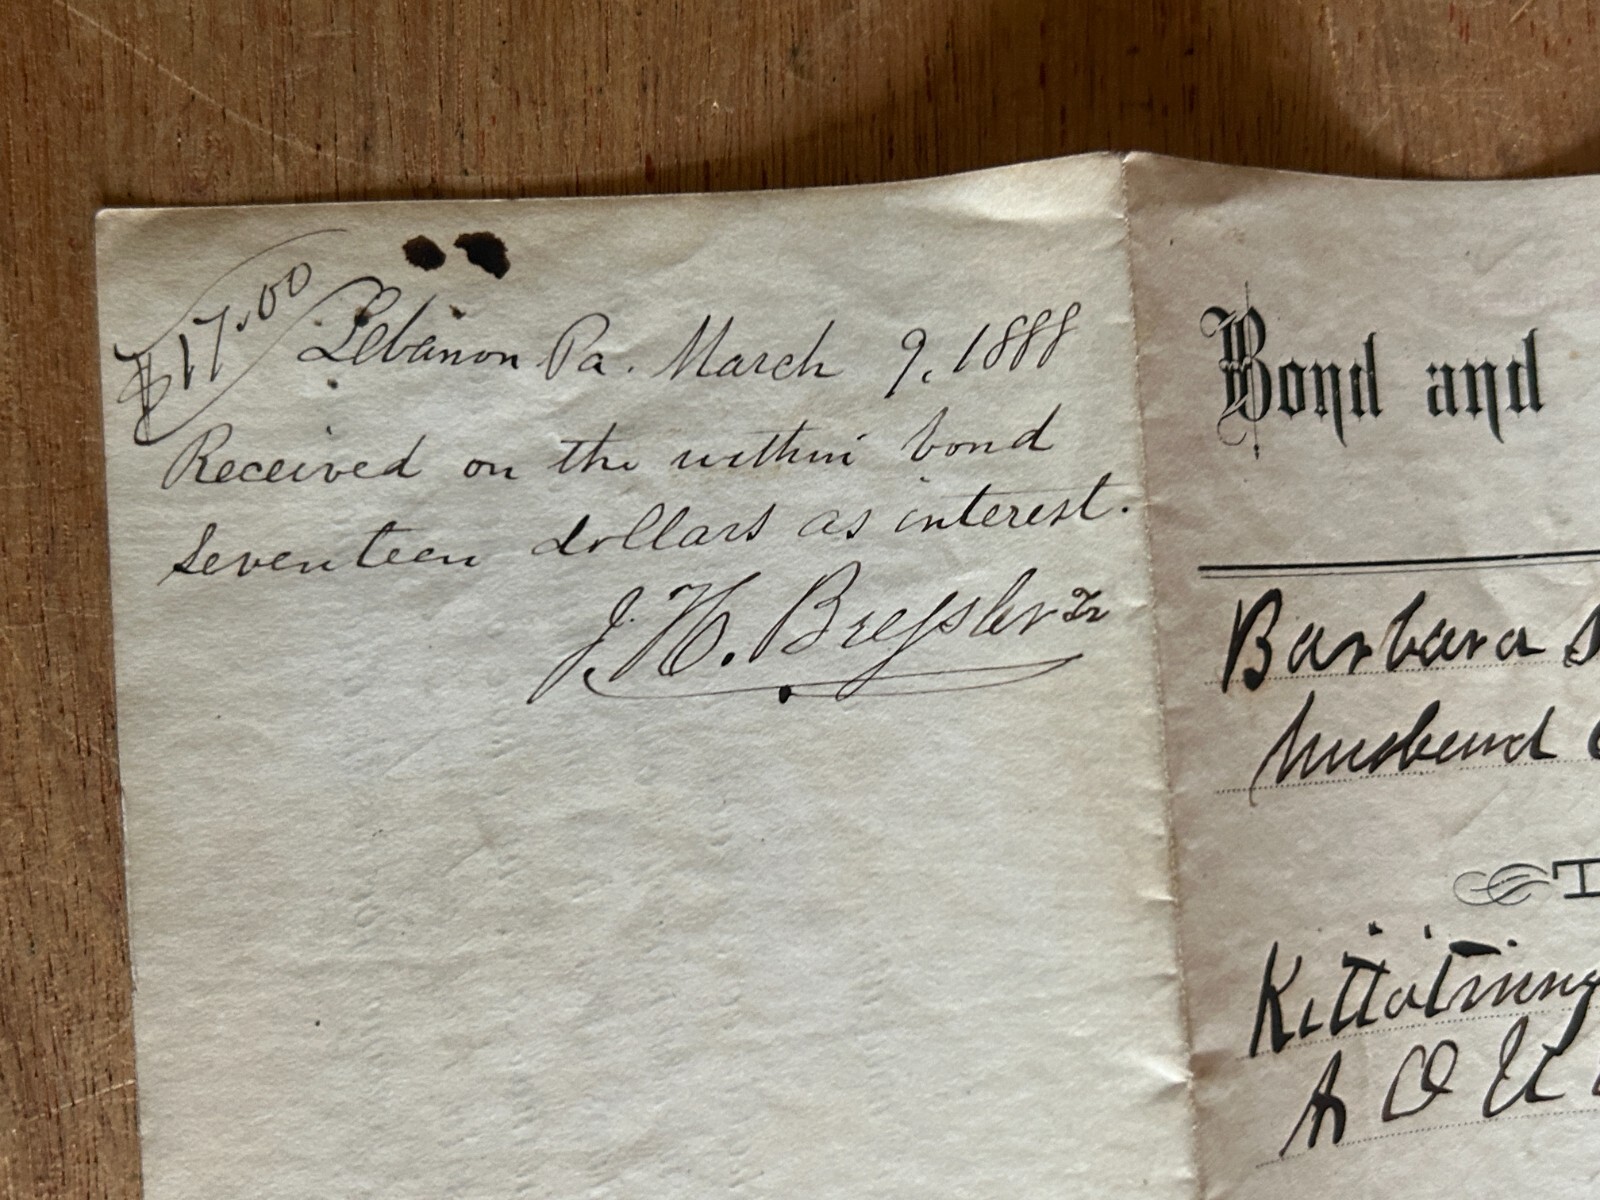 $17.00
Lebanon Pa. March 9, 1888
Received on the within bond
seventeen dollars as interest.
J. H. Bressler Tr
Bond and
Barbara
husband
Kittatinny
A O U